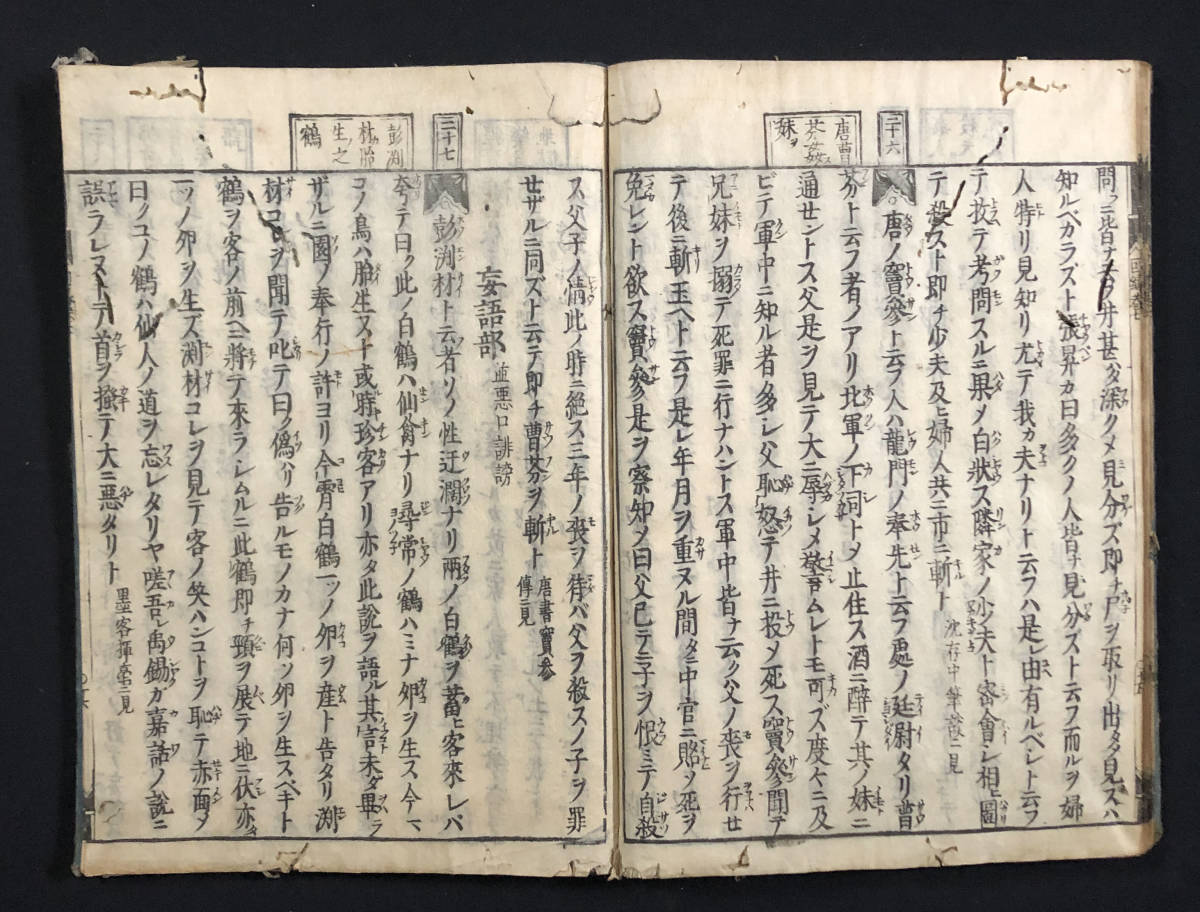 問フニ皆ナ云ク井甚ダ深クメ見分ズ即チ尸ヲ取リ出タ見スハ
知ルベカラズト張昇カ曰多クノ人皆チ見分ズト云フ而ルヲ婦
人特リ見知リ尤テ我カ夫ナリト云フハ是レ由有ルベレト云フ
テ拷テ考問スルニ果メ白狀ス隣家ノ少夫ト密會シ相ヒ圖
テ殺スト即チ少夫及ヒ婦人共ニ市ニ斬ルト 沈存中筆談ニ見
二十六
唐曹芬姦妹ヲ
唐ノ竇參ト云フ人ハ龍門ノ奉先ト云フ處ノ廷尉タリ曹
芬ト云フ者ノアリ北軍ノ下司トメ止住ス酒ニ醉テ其ノ妹ニ
通セントス父是ヲ見テ大ニ辱シメ警ムレトモ可ズ度々ニ及
ビテ軍中ニ知ル者多シ父恥怒テ井ニ投メ死ス竇參聞テ
兄妹ヲ搦テ死罪ニ行ナハントス軍中皆ナ云ク父ノ喪ヲ行セ
テ後ニ斬リ玉ヘト云フ是レ年月ヲ重ヌル間タニ中官ニ賂ソ死ヲ
免レント欲ス竇參是ヲ察知メ曰父已テニ子ヲ恨ミテ自殺
ス父子ノ情此ノ時ニ絕ス三年ノ喪ヲ待バ父ヲ殺スノ子ヲ罪
せザルニ同ズト云テ即チ曹芬ヲ斬ルト 唐書竇參傳ニ見
妄語部 並惡口誹謗
三十七
彭淵材胎生之鶴
彭渕材ト云者ソノ性迂濶ナリ兩ノ白鶴ヲ蓄ヒ客來レバ
夸テ曰ク此ノ白鶴ハ仙禽ナリ尋常ノ鶴ハミナ卵ヲ生ス今マ
コノ鳥ハ胎生スト或時珍客アリ亦タ此說ヲ語ル其言未タ畢
ザルニ園ノ奉行ノ許ヨリ今霄白鶴一ツノ卵ヲ産ト告タリ渕
材コレヲ聞テ叱テ曰ク偽ハリ告ルモノカナ何ソ卵ヲ生スベキト
鶴ヲ客ノ前ヘニ將テ來ラレムルニ此鶴即チ頸ヲ展テ地ニ伏亦
一ツノ卵ヲ生ズ渕材コレヲ見テ客ノ笑ハンコトヲ恥テ赤面メ
曰クコノ鶴ハ仙人ノ道ヲ忘レタリヤ嗟吾レ禹錫ガ嘉話ノ說ニ
誤ラレヌトテ首ヲ掻テ大ニ惡タリト 墨客揮毫ニ見